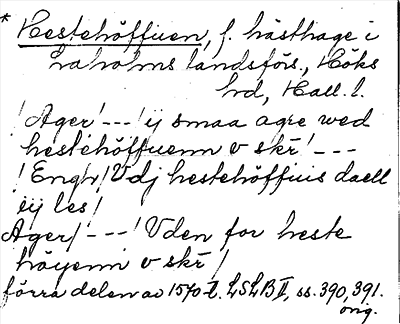 * Hestehöffuen, f. hästhage i
Laholms landsförs., Höks
hd, Hall. l.
! Ager! --- ! ij smaa agre wed
hestehöffuenn v skr! ---
! Engh! Vdj hestehöffuis daell
iij les!
Ager! --- ! Uden for heste
höyenn v skr!
förra delen av 1570-t. LSLB II, ss. 390, 391.
orig.